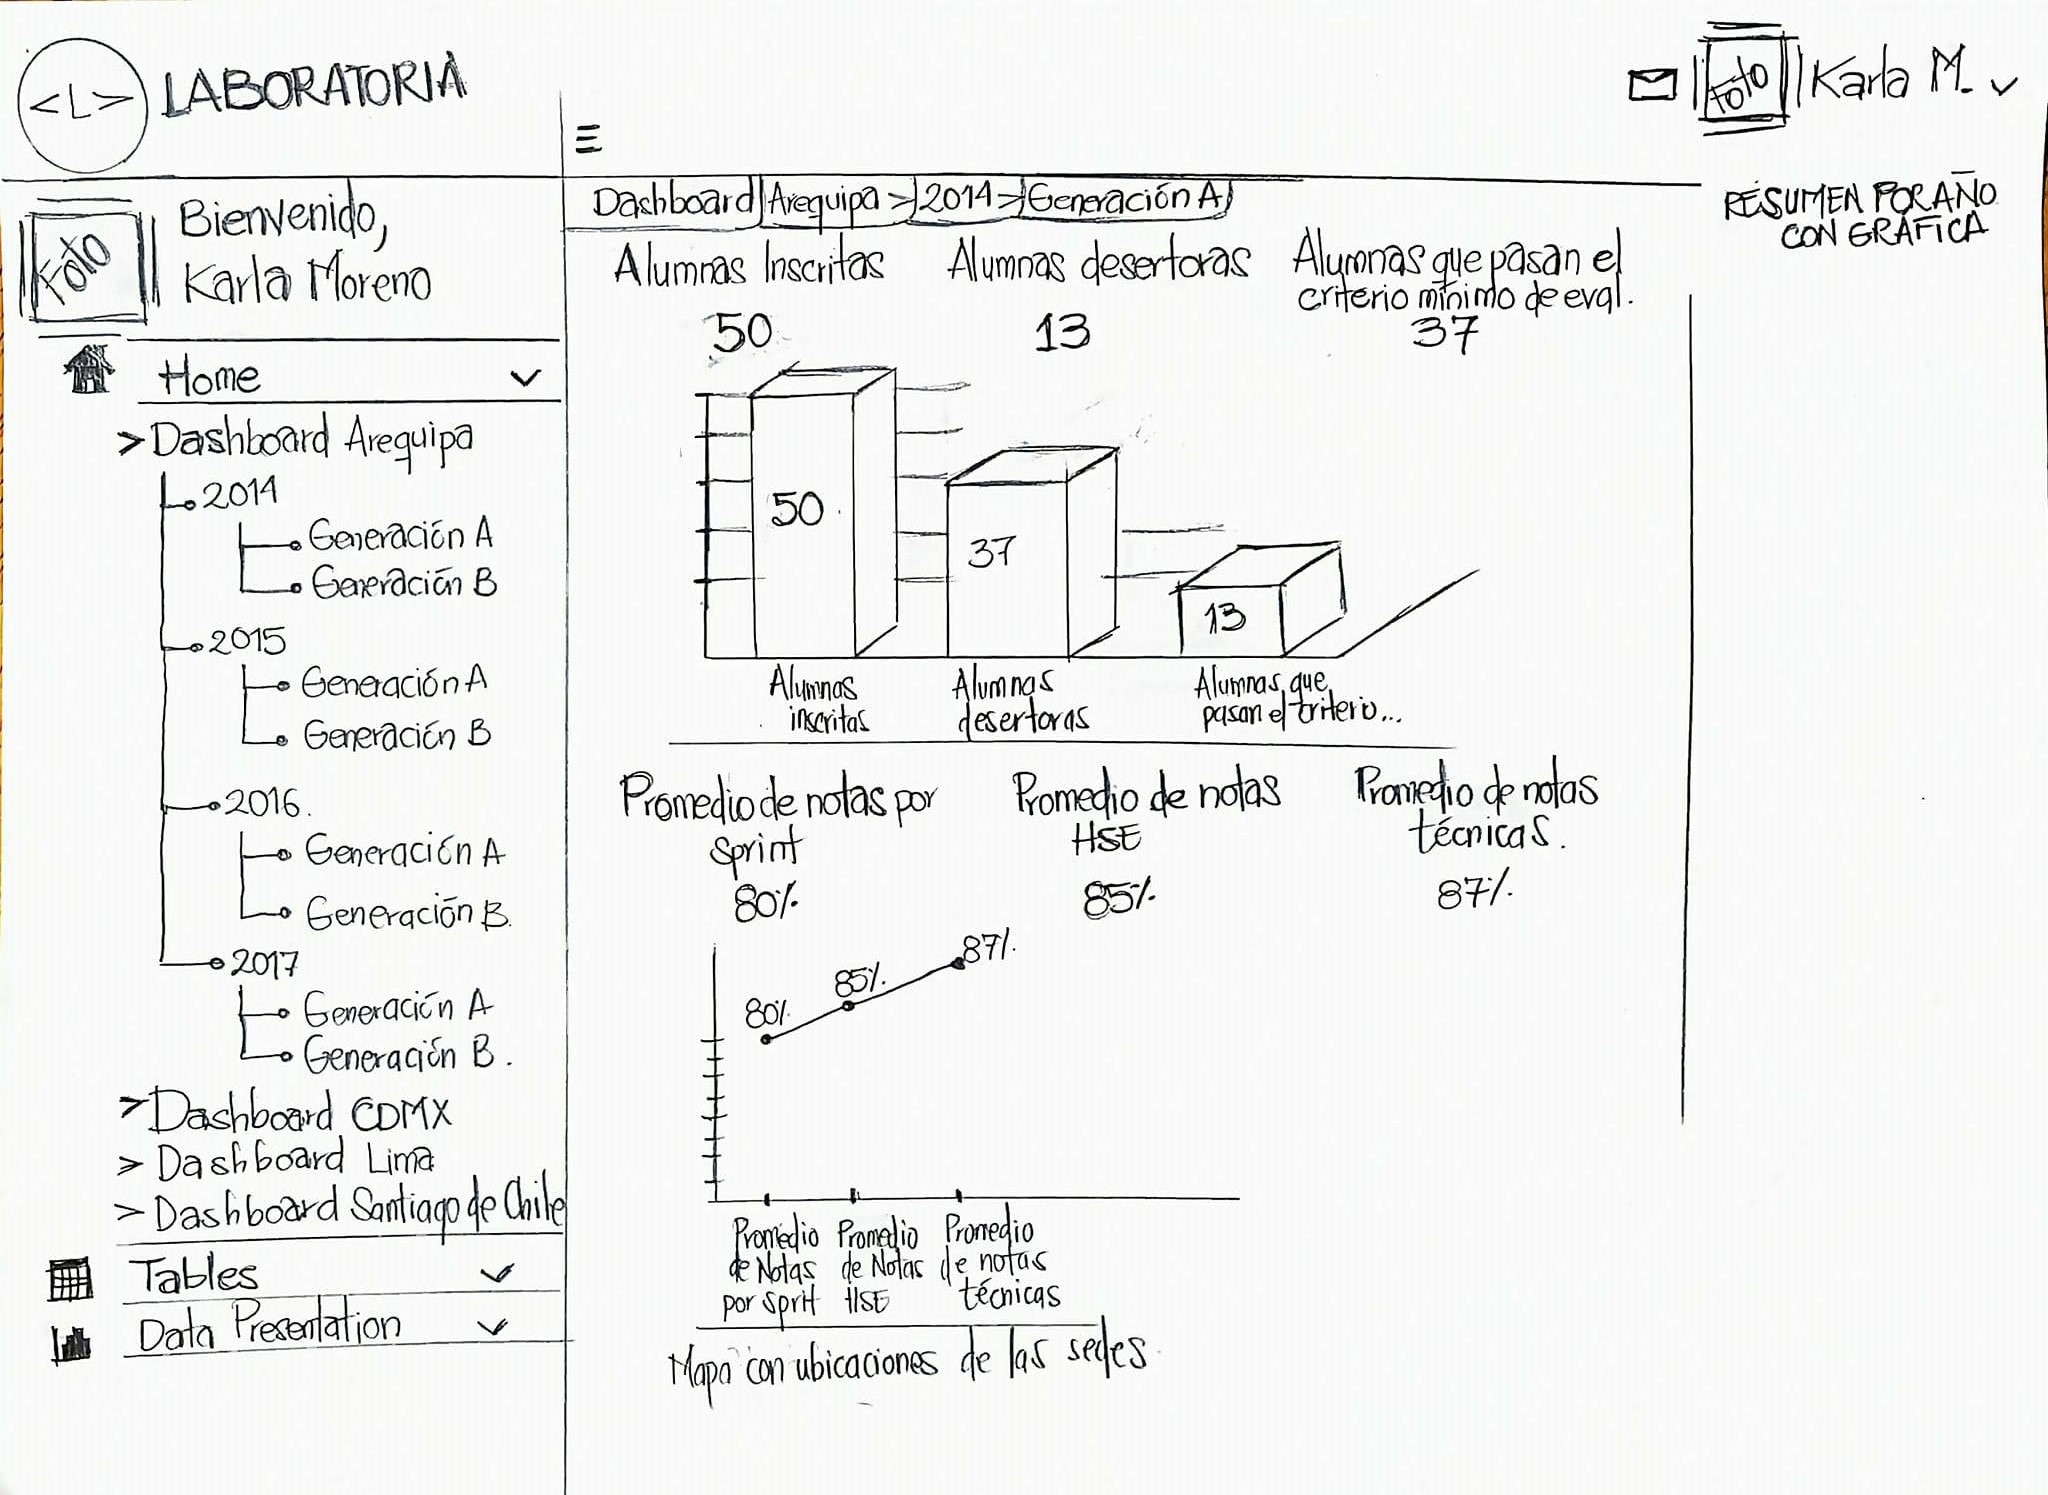 <L> LABORATORIA
Foto Karla M.
Foto
Bienvenido,
Karla Moreno
Home
> Dashboard Arequipa
2014
Generación A
Generación B
2015
Generación A
Generación B
2016.
Generación A
Generación B.
2017
Generación A
Generación B.
> Dashboard CDMX
> Dashboard Lima
> Dashboard Santiago de Chile
Tables
Data Presentation
Dashboard Arequipa > 2014 > Generación A
Alumnas Inscritas
50
Alumnas desertoras
13
Alumnas que pasan el
criterio mínimo de eval.
37
50
37
13
Alumnas
inscritas
Alumnas
desertoras
Alumnas que
pasan el criterio...
Promedio de notas por
Sprint
80%
Promedio de notas
HSE
85%
Promedio de notas
técnicas.
87%
80%
85%
87%
Promedio
de Notas
por Sprit
Promedio
de Notas
HSE
Promedio
de notas
técnicas
Mapa con ubicaciones de las sedes
RESUMEN POR AÑO
CON GRÁFICA